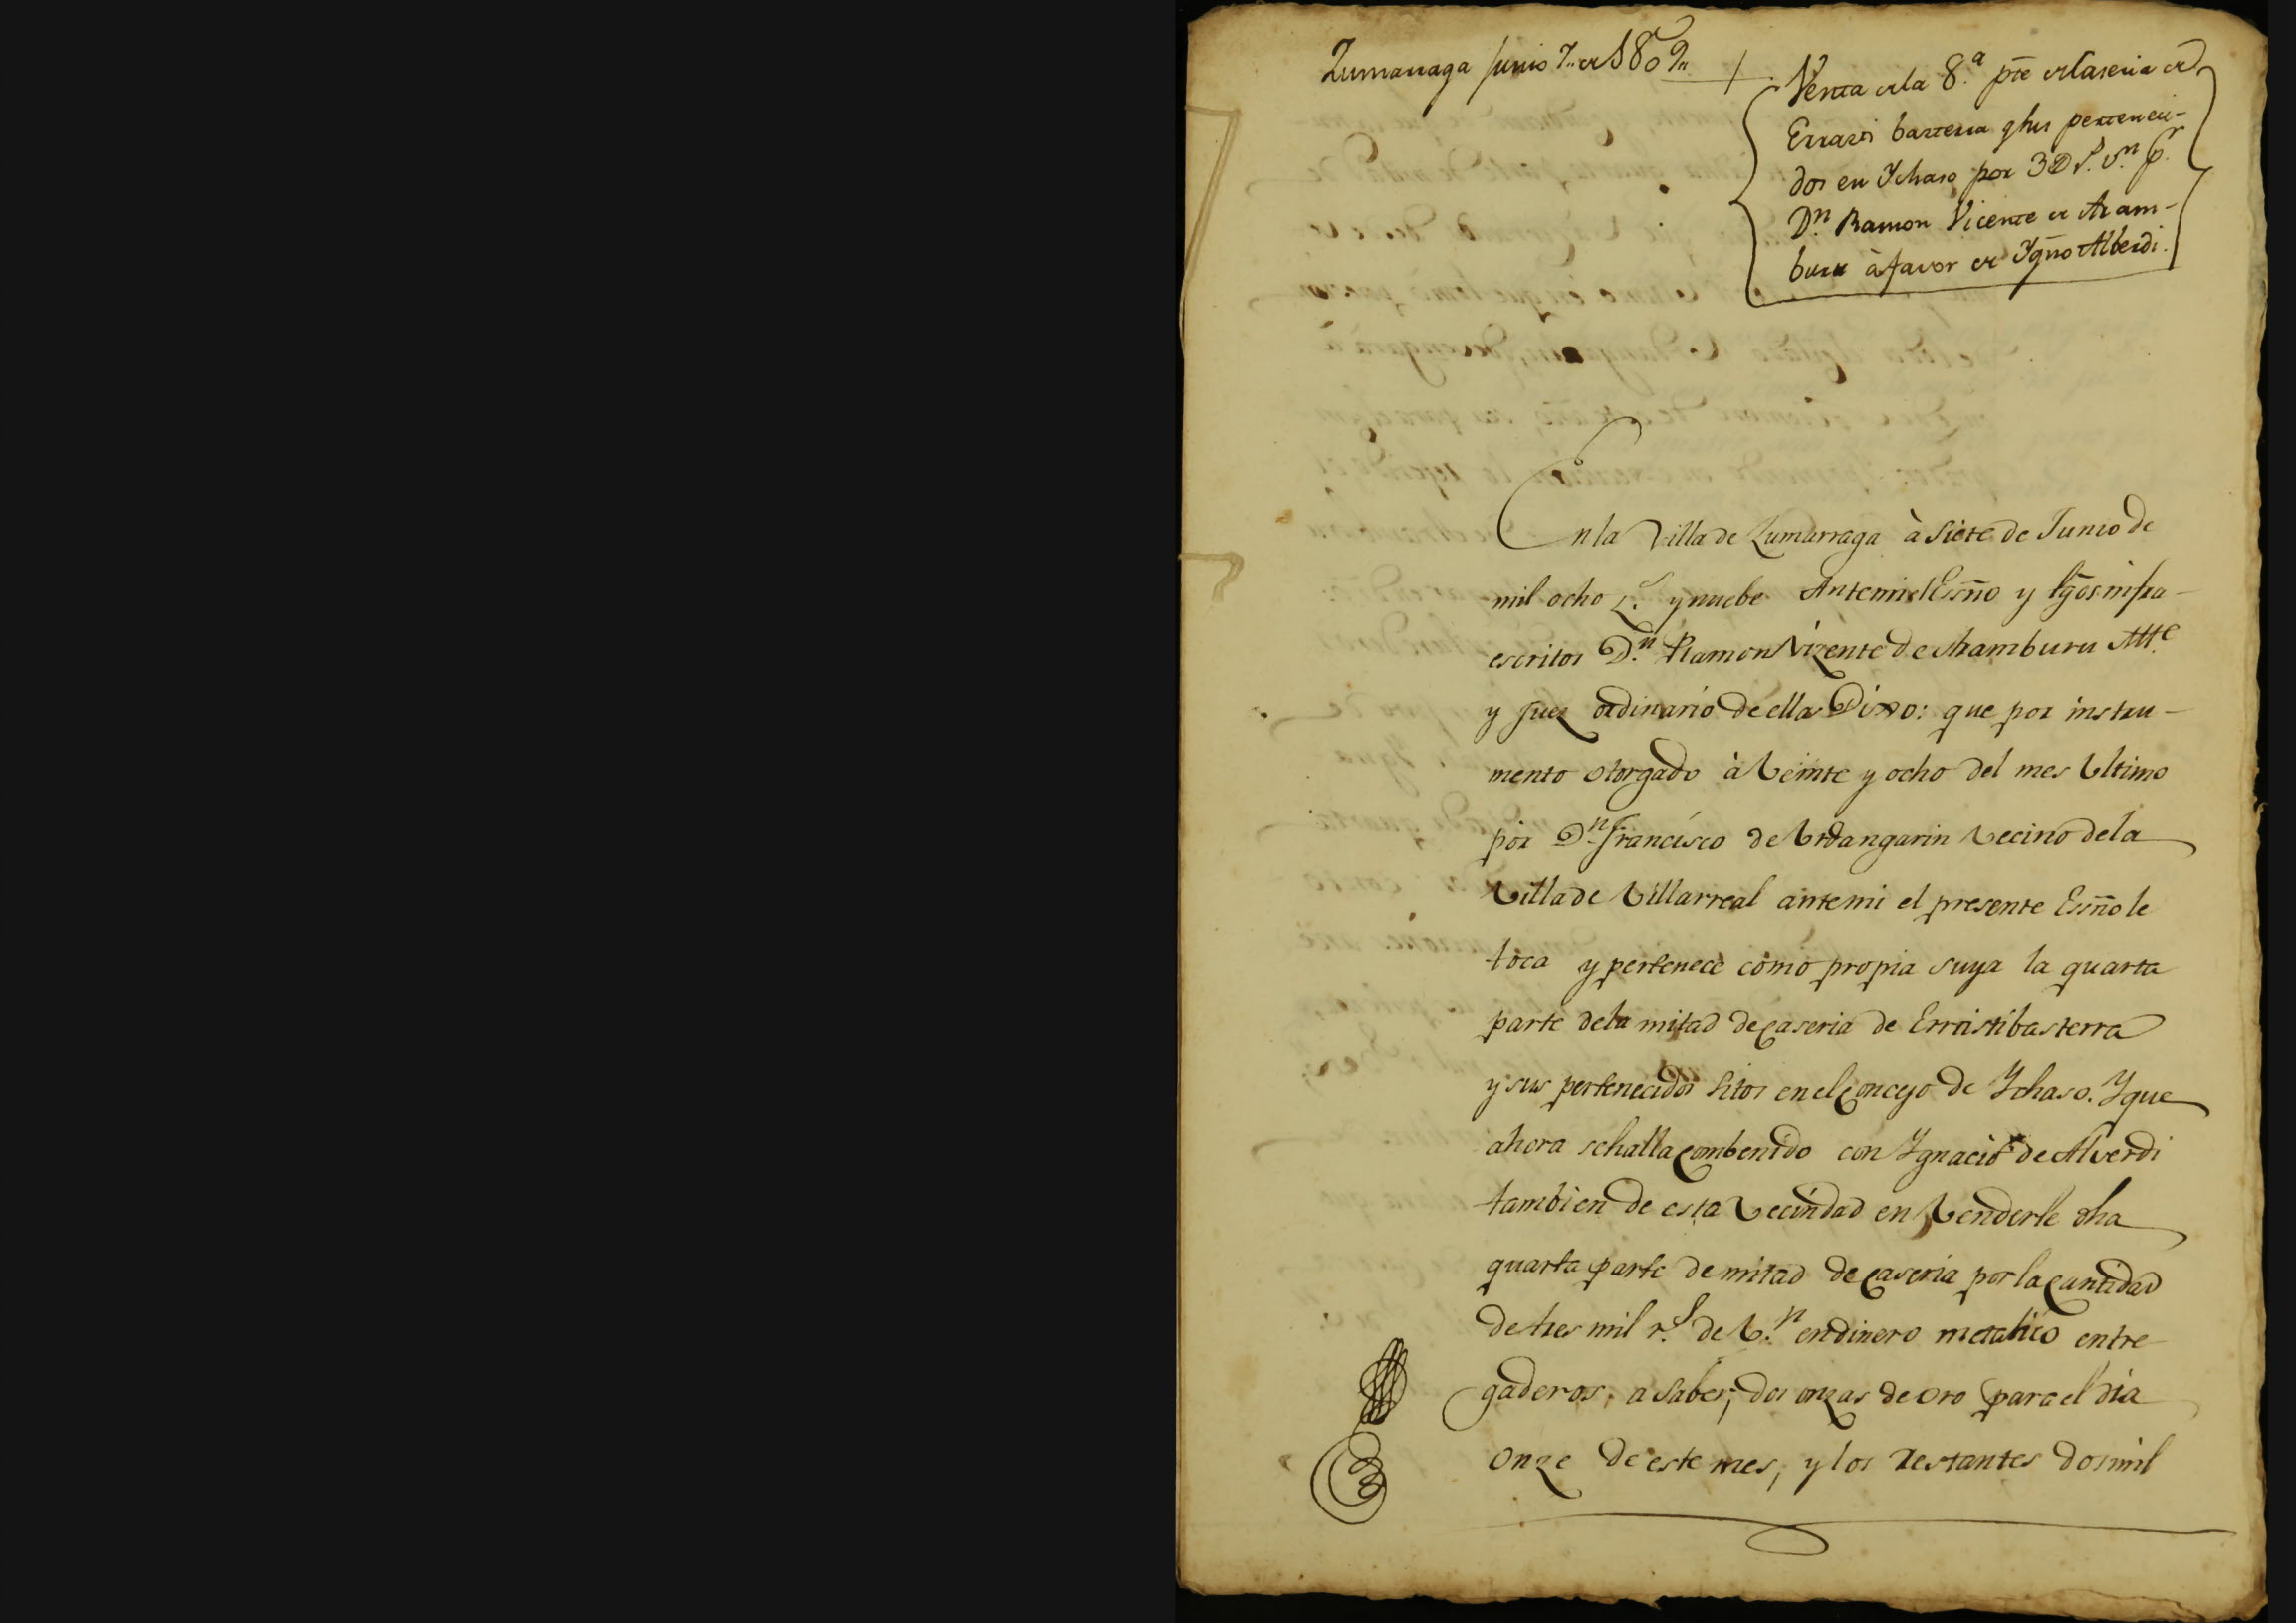 Zumarraga Junio 7,, de 1809,,
Venta de la 8.ª pte de Caseria de
Errazti basterra y sus perteneci-
dos en Ychaso por 3D r.s v.n pr.
D.n Ramon Vicente de Aram-
buru à favor de Ygño Alberdi.
En la Villa de Zumarraga à Siete de Junio de
mil ocho c.s y nuebe Antemi el Essño y tgõs infra-
escritos D.n Ramon Vizente de Aramburu Alle
y Juez ordinario de ella Dixo: que por instru-
mento otorgado à Veinte y ocho del mes Ultimo
por D.n Francisco de Urdangarin Vecino dela
Villa de Villarreal antemi el presente Essño le
toca y pertenece como propia suya la quarta
parte dela mitad de caseria de Erraistibasterra
y sus pertenecidos sitos en el Concejo de Ychaso. Y que
ahora se halla combenido con Ygnacio de Alverdi
tambien de esta Vecindad en Venderle dha
quarta parte de mitad de caseria por la cantidad
de tres mil r.s de V.n en dinero metalico entre
gaderos, a saber; dos onzas de oro para el dia
onze de este mes, y los restantes dos mil